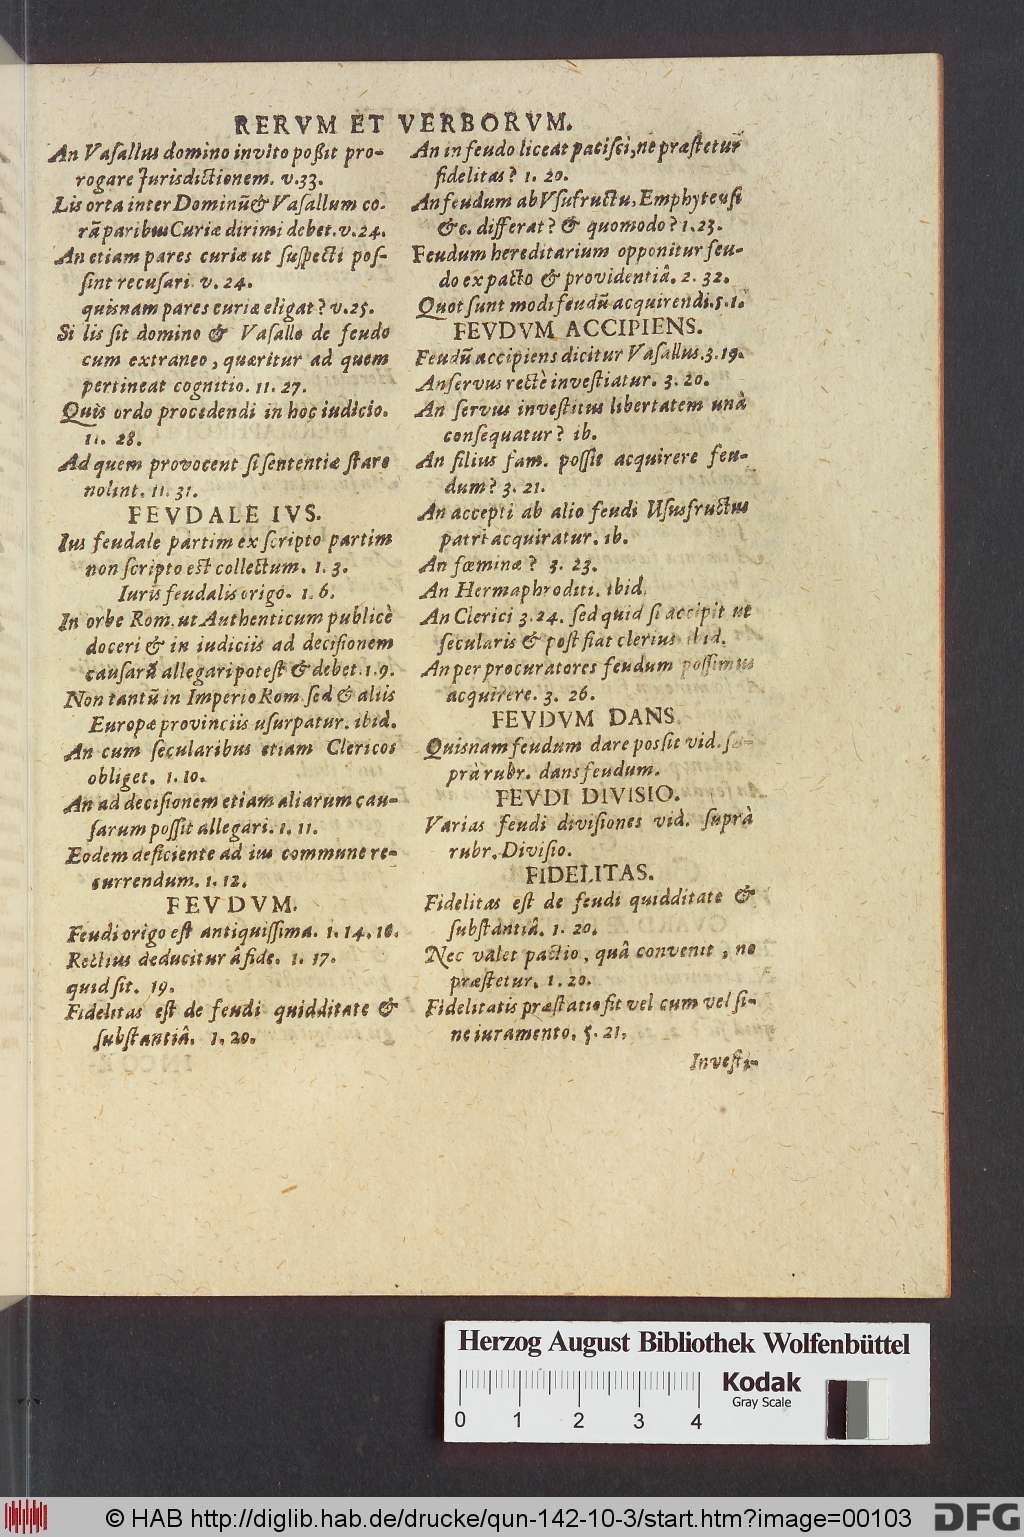 RERVM ET VERBORVM.
An Vaſallus domino invito poßit pro-
rogare Jurisdictionem. v.33.
Lis orta inter Dominũ & Vaſallum co-
rã paribus Curiæ dirimi debet. v.24.
An etiam pares curiæ ut ſuſpecti poſ-
ſint recuſari v. 24.
quisnam pares curiæ eligat? v.25.
Si lis ſit domino & Vaſallo de feudo
cum extraneo, quæritur ad quem
pertineat cognitio. 11. 27.
Quis ordo procedendi in hoc iudicio.
11. 28.
Ad quem provocent ſi ſententiæ ſtare
nolint. 11. 31.
FEVDALE IVS.
Ius feudale partim ex ſcripto partim
non ſcripto est collectum. 1. 3.
Iuris feudalis origo. 1. 6.
In orbe Rom. ut Authenticum publicè
doceri & in iudiciis ad deciſionem
cauſarũ allegari poteſt & debet. 1.9.
Non tantũ in Imperio Rom. ſed & aliis
Europæ provinciis uſurpatur. ibid.
An cum ſecularibus etiam Clericos
obliget. 1. 10.
An ad deciſionem etiam aliarum cau-
ſarum poſſit allegari. 1. 11.
Eodem deficiente ad ius commune re-
currendum. 1. 12.
FEVDVM.
Feudi origo eſt antiquiſſima. 1. 14. 16.
Rectius deducitur â fide. 1. 17.
quid ſit. 19.
Fidelitas eſt de feudi quidditate &
ſubſtantiâ. 1. 20.
An in feudo liceat paciſci, ne præſtetur
fidelitas? 1. 20.
An feudum ab Vſufructu, Emphyteuſi
&c. differat? & quomodo? 1.23.
Feudum hereditarium opponitur feu-
do ex pacto & providentiâ. 2. 32.
Quot ſunt modi feudũ acquirendi. 5. 1.
FEVDVM ACCIPIENS.
Feudũ accipiens dicitur Vaſallus. 3. 19.
An ſervus rectè inveſtiatur. 3. 20.
An ſervus inveſtitus libertatem unà
conſequatur? ib.
An filius fam. poſſit acquirere feu-
dum? 3. 21.
An accepti ab alio feudi Uſusfructus
patri acquiratur. ib.
An fœminæ? 3. 23.
An Hermaphroditi. ibid.
An Clerici 3. 24. ſed quid ſi accipit ut
ſecularis & poſt fiat clerius ibid.
An per procuratores feudum poſſimus
acquirere. 3. 26.
FEVDVM DANS.
Quisnam feudum dare poſſit vid. ſu-
prà rubr. dans feudum.
FEVDI DIVISIO.
Varias feudi diviſiones vid. ſuprà
rubr. Diviſio.
FIDELITAS.
Fidelitas eſt de feudi quidditate &
ſubſtantiâ. 1. 20.
Nec valet pactio, quâ convenit, ne
præſtetur. 1. 20.
Fidelitatis præſtatio fit vel cum vel ſi-
ne iuramento. 5. 21.
Inveſti-
Herzog August Bibliothek Wolfenbüttel
Kodak
Gray Scale
0 1 2 3 4
© HAB http://diglib.hab.de/drucke/qun-142-10-3/start.htm?image=00103
DFG